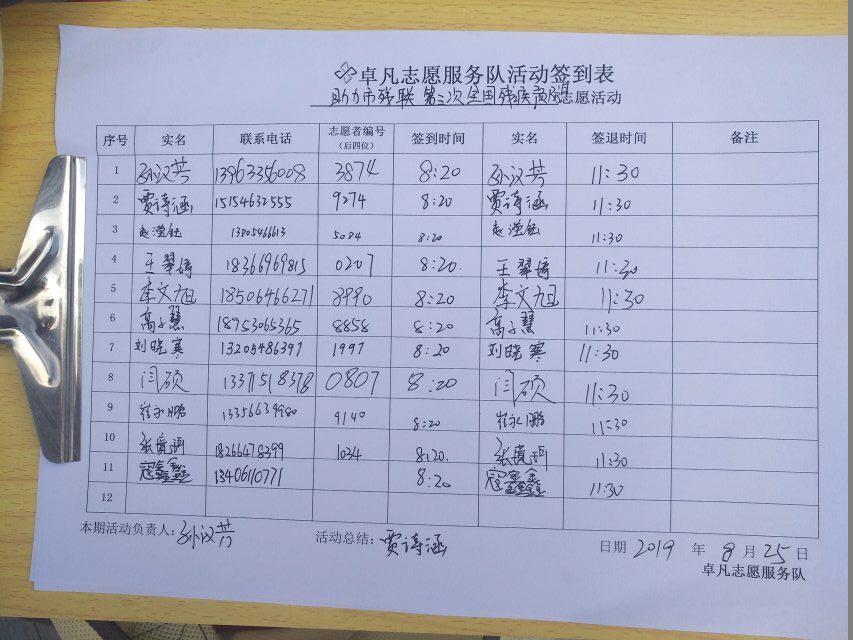 卓凡志愿服务队活动签到表
助力市残联 第三次全国残疾预防 志愿活动
序号 实名 联系电话 志愿者编号（后四位） 签到时间 实名 签退时间 备注
1 孙汉芳 13963356008 3874 8:20 孙汉芳 11:30
2 贾诗涵 15154632555 9274 8:20 贾诗涵 11:30
3 赵滢钰 13805466613 5084 8:20 赵滢钰 11:30
4 王翠婷 18366969815 0207 8:20. 王翠婷 11:30
5 李文旭 18506466271 8990 8:20 李文旭 11:30
6 高子慧 18753065365 8858 8:20 高子慧 11:30
7 刘晓寒 13205486397 1997 8:20 刘晓寒 11:30
8 闫硕 13371518378 0807 8:20 闫硕 11:30
9 崔永鹏 13356639980 9140 8:20 崔永鹏 11:30
10 张 18266478399 1034 8:20. 张 11:30
11 寇鑫鑫 13406110771 8:20 寇鑫鑫 11:30
12
本期活动负责人：孙汉芳 活动总结：贾诗涵 日期 2019 年 8 月 25 日
卓凡志愿服务队